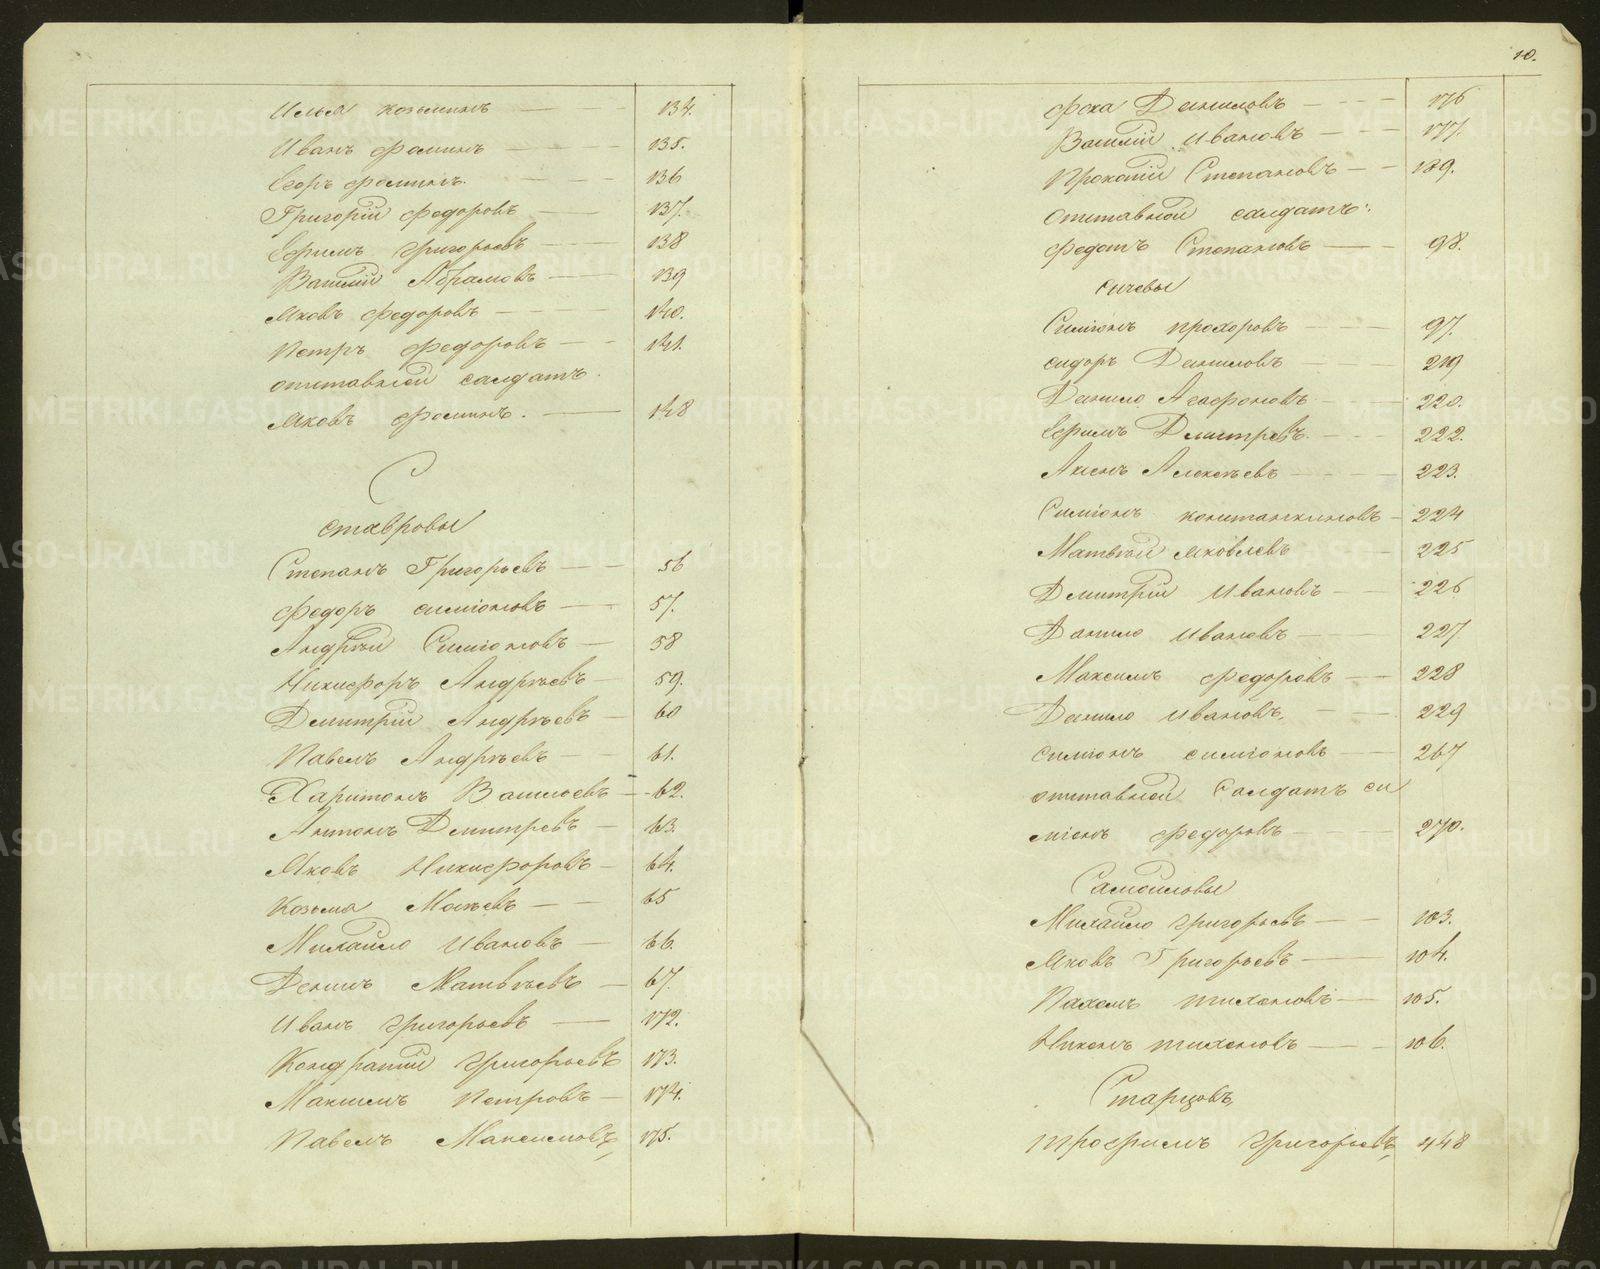 Илья Козьминъ 134.
Иванъ Фоминъ 135.
Егоръ Фоминъ. 136
Григорій Федоровъ 137.
Ефимъ Григорьевъ 138
Василій Абрамовъ 139
Яковъ Федоровъ 140.
Петръ Федоровъ 141.
отставной салдатъ.
Яковъ Фоминъ. 148
С
Ставровы
Степанъ Григорьевъ 56
Федоръ Симіоновъ 57.
Андрѣй Симіоновъ 58
Никифоръ Андрѣевъ 59.
Дмитрій Андрѣевъ 60
Павелъ Андрѣевъ 61.
Харитонъ Васильевъ 62.
Антонъ Дмитревъ 63.
Яковъ Никифоровъ 64.
Козьма Мокѣевъ 65
Михайло Ивановъ 66.
Денисъ Матвѣевъ 67.
Иванъ Григорьевъ 172.
Кондратій Григорьевъ 173.
Максимъ Петровъ 174.
Павелъ Максимовъ, 175.
10.
Фока Даниловъ 176
Василій Ивановъ 177.
Прокопій Степановъ 189.
отставной салдатъ:
Федотъ Степановъ 98.
Сычевы
Симіонъ Прохоровъ 97.
Сидоръ Даниловъ 219
Данило Агафоновъ 220.
Ефимъ Дмитревъ. 222.
Аксенъ Алексѣевъ 223.
Симіонъ Константиновъ 224
Матвѣй Яковлевъ 225
Дмитрій Ивановъ 226
Данило Ивановъ 227
Максимъ Федоровъ 228
Данило Ивановъ. 229
Симіонъ Симіоновъ 267
отставной Салдатъ Си
міонъ Федоровъ 270.
Самойловы
Михайло Григорьевъ 103.
Яковъ Григорьевъ 104.
Пахомъ Тихоновъ 105.
Никонъ Тихоновъ 106.
Старцовъ,
Трофимъ Григорьевъ, 448
METRIKI.GASO-URAL.RU